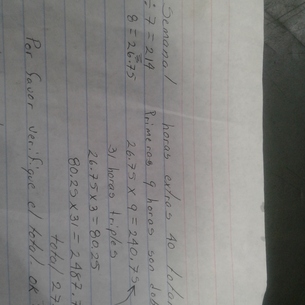 Semanal horas extras 40 total
÷ 7 = 214 Primeras 9 horas son dob
8 = 26.75 26.75 x 9 = 240.75
31 horas triples
26.75 x 3 = 80.25
80.25 x 31 = 2487.7
total 27
Por favor verifique el total. ok